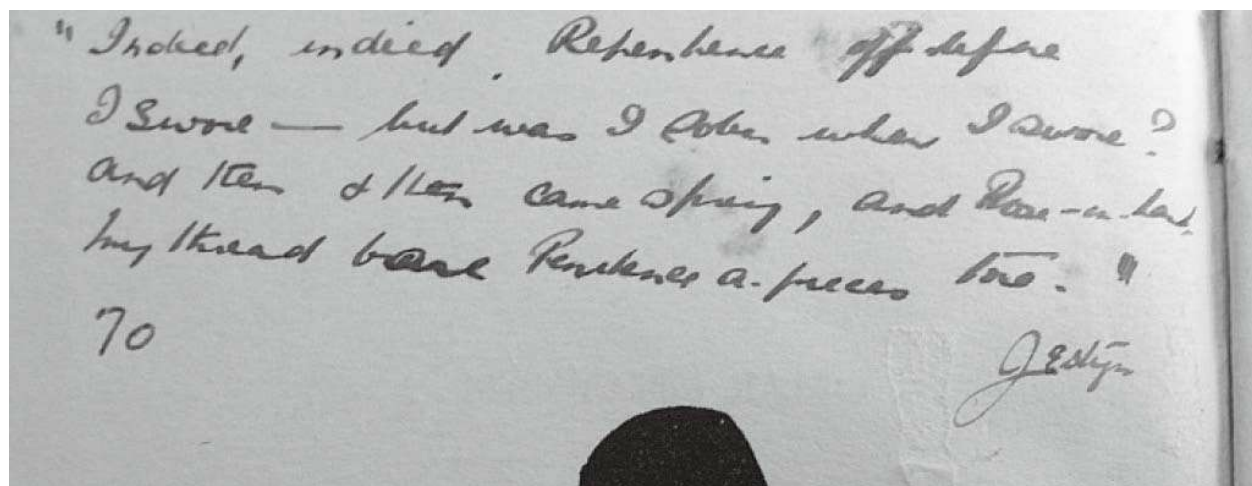 " Indeed, indeed, Repentance oft before
I swore — but was I sober when I swore?
and then & then came spring, and Rose-in-hand
my thread bare Penitence a-pieces tore. "
70
JEstyn